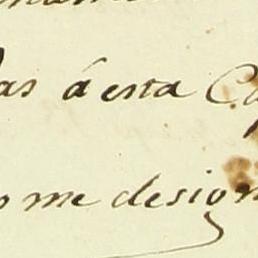 as á esta C
o me design